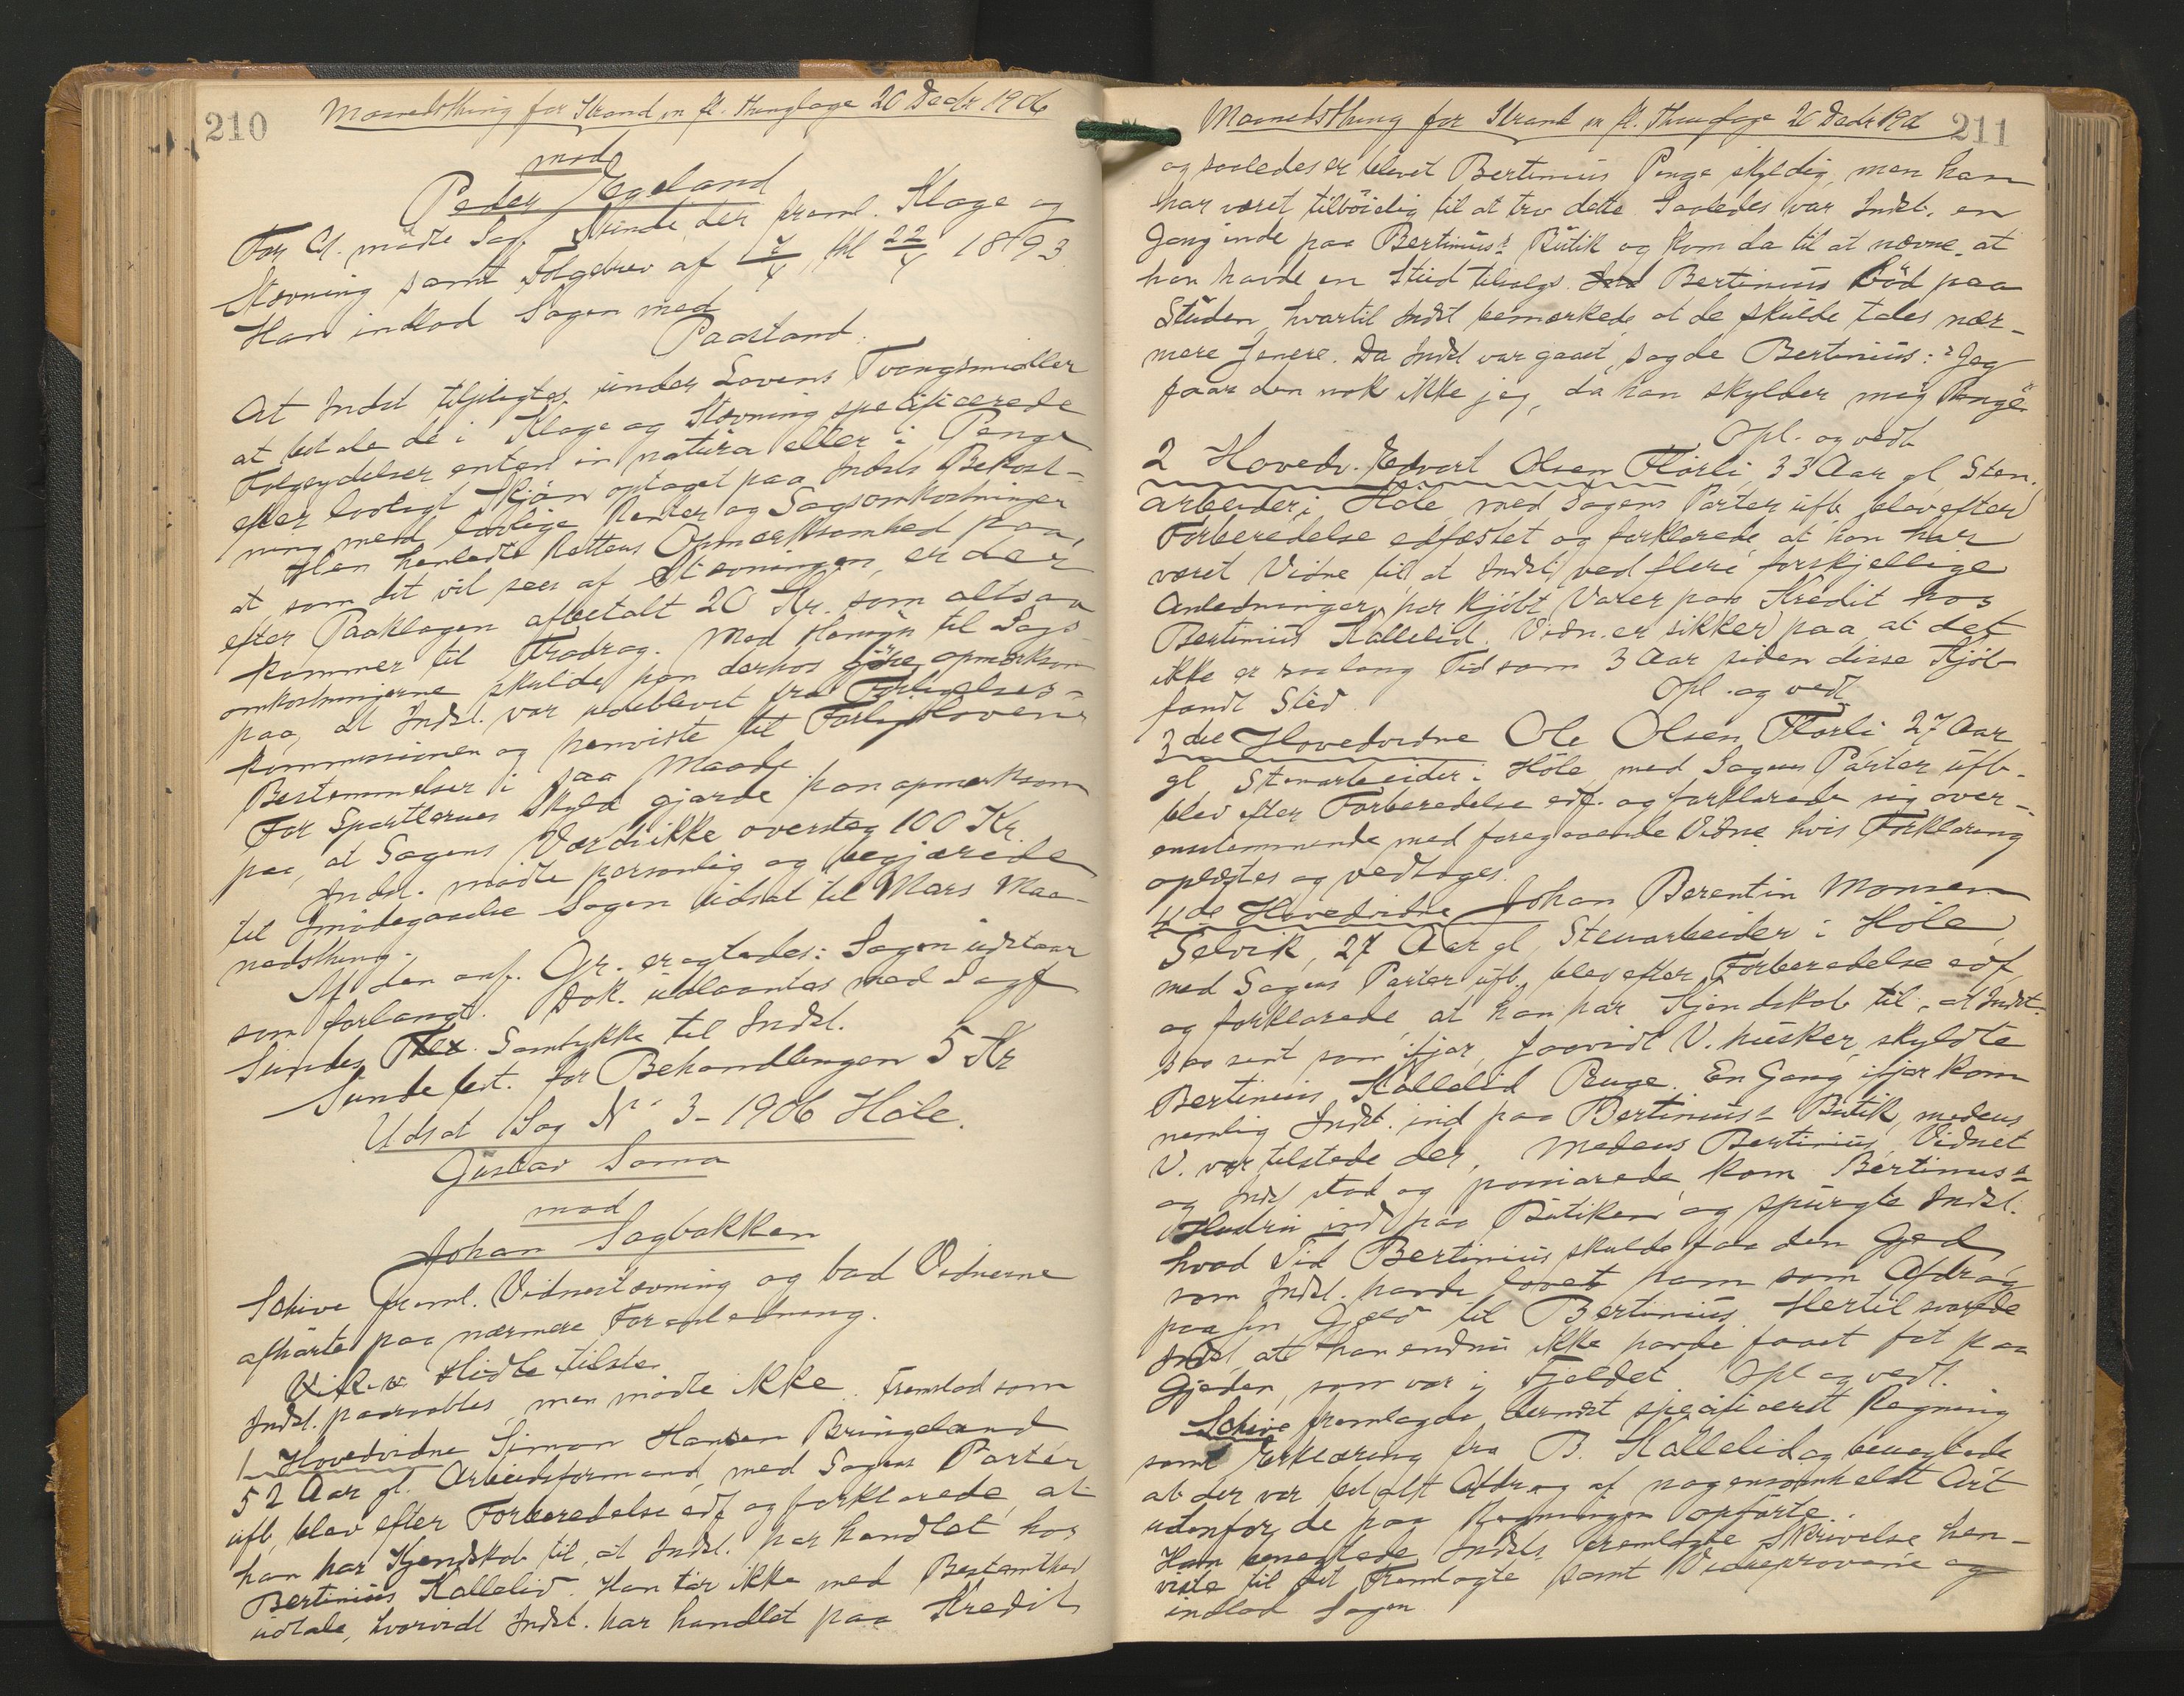 210
Maanedsthing for Strand m fl. thinglage 20 Decbr 1906
mod
Peder Egeland
For Cit. mødte Sagf. Sunde, der freml. Klage og
Stævning samt Følgebrev af 17/4, thl 22/4 1893
Han indlod Sagen med
Paastand:
At Indst tilpligtes under Lovens Tvangsmidler
at betale de i Klage og Stævning specificerede
Folgeydelser enten in natura eller i Penge
efter lovligt Skjøn optaget paa Indsts Bekost-
ning med lovlige Renter og Sagsomkostninger
Han henledte Rettens Opmærksomhed paa,
at som det vil sees af Stævningen, er der
efter Paaklagen afbetalt 20 Kr. som altsaa
kommer til Fradrag. Med Hensyn til Sags-
omkostningerne skulde han derhos gjøre opmærksom
paa, at Indst. var udeblevet fra Forligelses-
kommissionen og henviste til Forligslovens
Bestemmelser i saa Maade
For Sportlernes Skyld gjorde han opmærksom
paa, at Sagens Værdi ikke oversteg 100 Kr.
Indst. mødte personlig og begjærede
til Imødegaaelse Sagen udsat til Mars Maa-
nedsthing.
Af den anf. Gr. eragtedes: Sagen udstaar
som forlangt. Dok. udlaantes med Sagf
Sundes Samtykke til Indst.
Sunde bet. for Behandlingen 5 Kr
Udsat Sag No 3-1906 Høle.
Gustav Soma
mod
Johan Sagbakken
Schive freml. Vidnestævning og bad Vidnerne
afhørte paa nærmere Foranledning.
Indst. paaraabtes, men mødte ikke. Fremstod som
1 Hovedvidne Simon Hansen Bringeland
52 Aar gl. Arbeidsformand, med Sagens Parter
ufb, blev efter Forberedelse edf og forklarede, at
han har Kjendskab til, at Indst. har handlet hos
Bertinius Kallelid. Han tør ikke med Bestemthed
udtale, hvorvidt Indst. har handlet paa Kredit
Maanedsthing for Strand m fl. Thinglage 20 Decbr 1906
211
og saaledes er blevet Bertinius Penge skyldig, men han
har været tilbøielig til at tro dette. Saaledes var Indst. en
Gang inde paa Bertinius's Butik og kom da til at nævne, at
han havde en Stud tilsalgs. Bertinius bød paa
Studen, hvortil Indst bemærkede, at de skulde tales nær-
mere senere. Da Indst var gaaet, sagde Bertinius: "Jeg
faar den nok ikke jeg, da han skylder mig Penge"
Opl. og vedt.
2 Hovedv. Edvart Olsen Flørli, 33 Aar gl Sten-
arbeider i Høle, med Sagens Parter ufb, blev efter
Forberedelse edfæstet og forklarede, at han har
været Vidne til at Indst, ved flere forskjellige
Anledninger, har kjøbt Varer paa Kredit hos
Bertinius Kallelid. Vidn. er sikker paa, at det
ikke er saa lang Tid som 3 Aar siden disse Kjøb
fandt Sted.
Opl. og vedt
3die Hovedvidne Ole Olsen Flørli 27 Aar
gl Stenarbeider i Høle, med Sagens Parter ufb.
blev efter Forberedelse edf. og forklarede sig over-
ensstemmende med foregaaende Vidne, hvis Forklaring
oplæstes og vedtoges.
4de Hovedvidne Johan Berentin Monsen
Selvik, 27 Aar gl, Stenarbeider i Høle,
med Sagens Parter ufb, blev efter Forberedelse edf
og forklarede, at han har Kjendskab til, at Indst.
saa sent som ifjor, saavidt V. husker, skyldte
Bertinius Kallelid Penge. En Gang ifjor kom
nemlig Indst. ind paa Bertinius's Butik, medens
V. var tilstede der. Medens Bertinius, Vidnet
og Indst stod og passiarede, kom Bertinius's
Hustru ind paa Butiken og spurgte Indst.
hvad Tid Bertinius skulde faa den Gjed
som Indst. havde lovet ham som Afdrag
paa sin Gjæld til Bertinius. Hertil svarede
Indst, at han endnu ikke havde faaet fat paa
Gjeden, som var i Fjeldet. Opl og vedt.
Schive fremlagde dernæst specificeret Regning
samt Erklæring fra B. Kallelid og benegtede
at der var betalt Afdrag af nogensomhelst Art
udenfor de paa Regningen opførte.
Han benegtede Indsts fremlagte Skrivelse hen-
viste til det Fremlagte samt Vidneprovene og
indlod Sagen